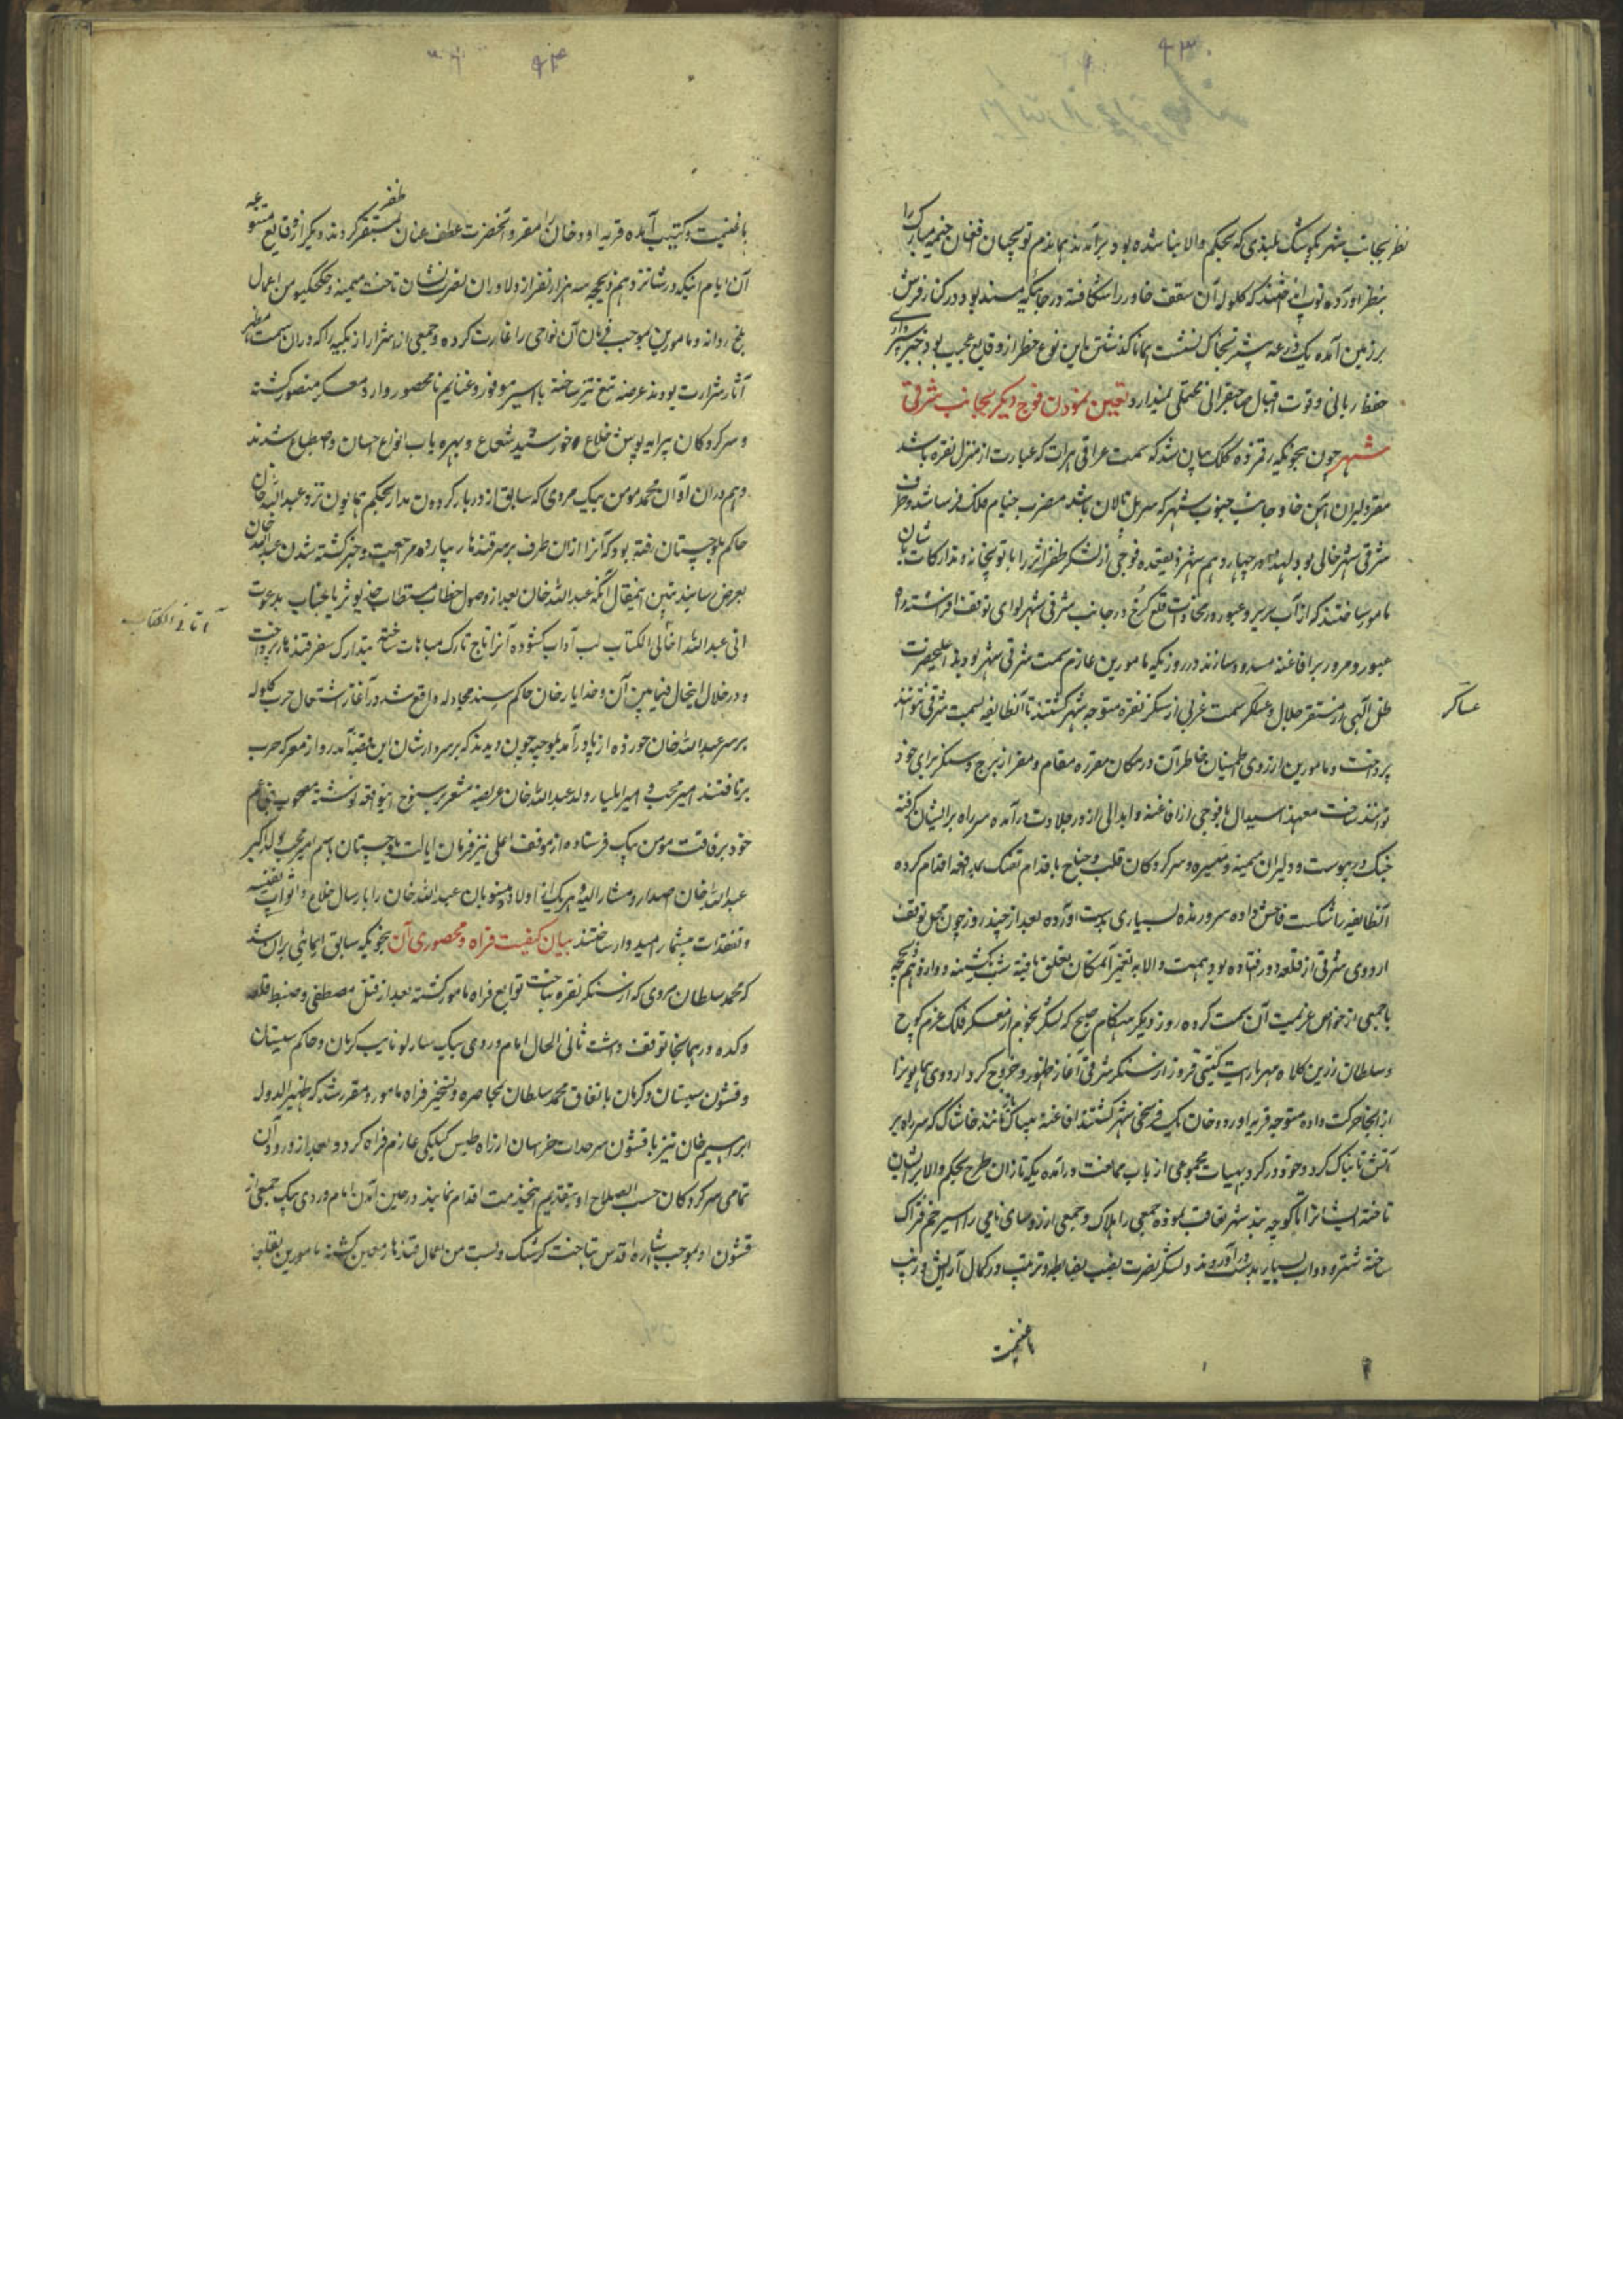 ۹۳
نظر بجانب شهر بکوشک بلندی که بحکم والا بنا شده بود برآمدند همانروز توپچیان افغان خیمه مبارک را
بنظر آورده توپ انداختند که گلوله آن سقف خاور را شکافته در جائیکه مسند بود در کنار فرش
بر زمین آمده یک ذرعه بیشتر بخاک نشست همانا گذشتن باین نوع خطر از وقایع عجیب بود جز سپرداری
حفظ ربانی و قوت اقبال صاحبقرانی محملی نمیدارد تعیین نمودن فوج دیگر بجانب شرقی
شهر چون بنحویکه رقمزده کلک بیان شد که سمت عراقی هرات که عبارت از منزل نقره باشد
مقر دلیران آهن خا و جانب جنوب شهر که سر پل مالان باشد مضرب خیام فلک فرسا شد و طرف
شرقی شهر خالی بود لهذا در چهاردهم شهر ذیقعده فوجی از لشکر ظفر اثر را با توپخانه و تدارکات شایان
مامور ساختند که از آب هریرود عبور و در محاذات قلع کرخ در جانب شرقی شهر لوای توقف افراشته راه
عبور و مرور بر افاغنه مسدود سازند در روزیکه مامورین عازم سمت شرقی شهر بودند اعلیحضرت
ظل الهی از مستقر جلال و عسکر سمت غربی از سنگر نقره متوجه شهر گشتند تا آنطایفه بسمت شرقی نتوانند
عساکر
پرداخت و مامورین از روی اطمینان خاطر آن در مکان مقرره مقام و مقر از برج و سنگر برای خود
توانند ساخت معهذا سیدال با فوجی از افاغنه و ابدالی از در جلادت درآمده سر راه بر ایشان گرفته
جنگ در پیوست و دلیران میمنه و میسره و سرکردگان قلب و جناح باقدام تفنگ بمدافعه اقدام کرده
آنطایفه را شکست فاحش داده سر و زنده بسیاری بدست آورده بعد از چند روز چون محل توقف
اردوی شرقی از قلعه دور افتاده بود همت والا به تغییر آنمکان تعلق یافته شب یکشنبه دوازدهم ذیحجه
با جمعی از خواص عزیمت آن سمت کرده روز دیگر هنگام صبح که لشکر نجوم از معسکر فلک عزم کوچ
و سلطان زرین کلاه مهر با رایت گیتی فروز از سنگر شرقی آغاز ظهور و خروج کرد اردوی همایون را
از آنجا حرکت داده متوجه قریه اوردو خان یک فرسخی شهر گشتند افاغنه بیباک مانند خاشاک که سر راه بر
آتش تابناک گیرد و خود درگیرد بهیات مجموعی از باب ممانعت درآمده یکه تازان طرح بحکم والا بر ایشان
تاخته ایشانرا تا کوچه بند شهر تعاقب نموده جمعی را هلاک و جمعی از رؤسای نامی را اسیر خم فتراک
ساخته شتر و دواب بسیار بدست درآوردند و لشکر نصرت نصیب بضابطه و ترتیب در کمال آرایش و زیب
باغنیمت
۹۴
باغنیمت و کتیب آمده قریه اوردخان را مقر و آنحضرت عطف عنان بمستقر ظفر کردند دیگر از وقایع متنوعه
آن ایام اینکه در شانزدهم ذیحجه سه هزار نفر از دلاوران نصرت نشان بتاخت میمنه و چیچکتو من اعمال
بلخ روانه و مامورین بموجب فرمان آن نواحی را غارت کرده و جمعی از اشرار از بکیه را که در آن سمت مصدر
آثار شرارت بودند عرضه تیغ تیز ساخته با اسیر موفور و غنایم نامحصور وارد معسکر منصور گشته
و سرکردگان پیرایه پوش خلاع خورشید شعاع و بهره یاب انواع احسان و اصطناع شدند
و هم در آن اوان محمد مومن بیک مروی که سابق از دربار گردون مدار بحکم همایون نزد عبدالله خان
حاکم بلوچستان رفته بود که آنرا از آن طرف بر سر قندهار بیارد مراجعت و خبر کشته شدن عبدالله خان
بعرض رسانید تبیین اینمقال آنکه عبدالله خان بعد از وصول خطاب مستطاب خدیو ثریا جناب بدعوت
انی عبدالله اتانی الکتاب لب آداب گشوده آنرا تاج تارک مباهات ساخته بتدارک سفر قندهار پرداخت
آتانی الکتاب
و در خلال اینحال فیمابین آن و خدایار خان حاکم سند مجادله واقع شد در آغاز اشتعال حرب گلوله
بر سر عبدالله خان خورده از پا درآمد بلوچیه چون دیدند که بر سردارشان این قضیه آمد رو از معرکه حرب
برتافتند امیر محبت و امیر ایلیار ولد عبدالله خان عریضه مشعر بر سنوح اینواقعه نوشته مصحوب بنی عم
خود برفاقت مومن بیک فرستاده از موقف اعلی نیز فرمان ایالت بلوچستان باسم امیر محبت ولد اکبر
عبدالله خان اصدار و مشارالیه و هر یک از اولاد و منسوبان عبدالله خان را بارسال خلاع و اثواب نفیسه
و تفقدات بیشمار امیدوار ساختند بیان کیفیت فراه و محصوری آن بنحویکه سابق ایمائی بر آن شد
که محمد سلطان مروی که از سنگر نقره بتاخت توابع فراه مامور گشته بعد از قتل مصطفی و ضبط قلعه
و کده در همانجا توقف داشت ثانی الحال امام وردی بیک بیارلو نایب کرمان و حاکم سیستان
و قشون سیستان و کرمان باتفاق محمد سلطان بمحاصره و تسخیر فراه مامور و مقرر شد که ظهیرالدوله
ابراهیم خان نیز با قشون سرحدات خراسان از راه طبس گیلکی عازم فراه گردد و بعد از ورود آن
تمامی سرکردگان حسب الصلاح او بتقدیم اینخدمت اقدام نمایند در حین آمدن امام وردی بیک جمعی از
قشون او بموجب اشاره اقدس بتاخت گرشک و بست من اعمال قندهار معین گشته مامورین بقلعجات